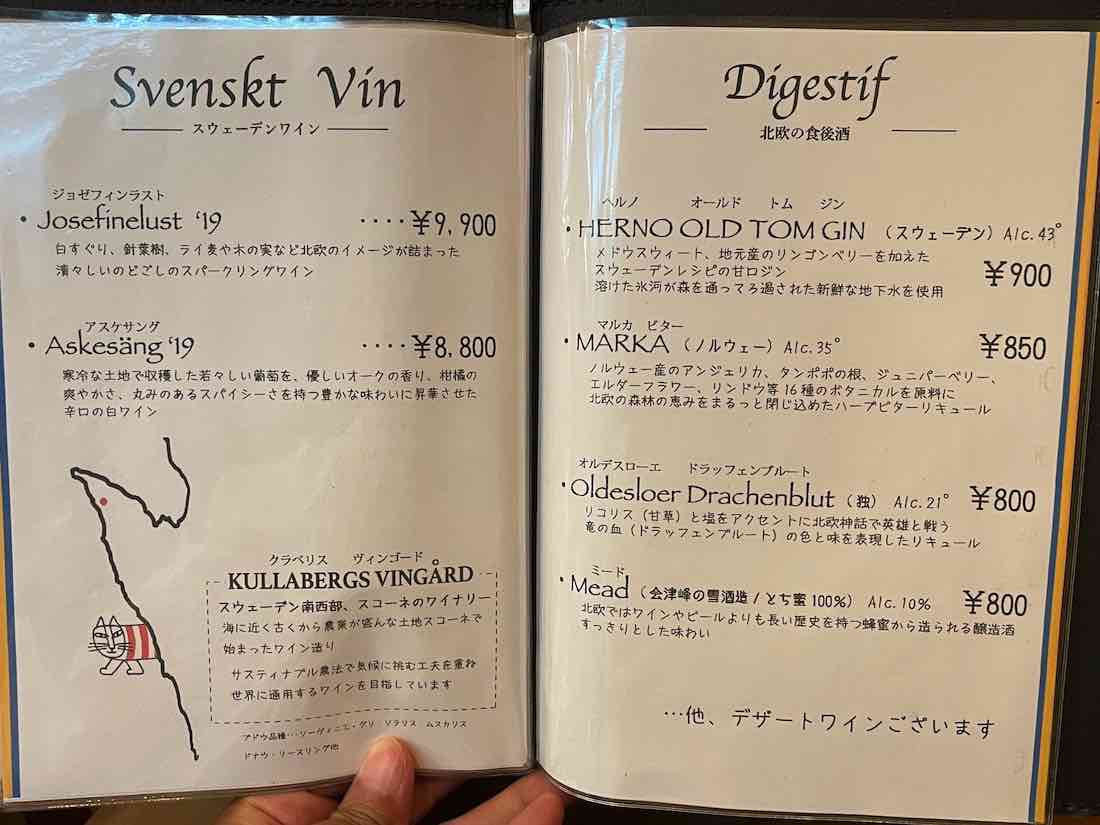 Svenskt Vin
スウェーデンワイン
ジョゼフィンラスト
・Josefinelust '19 ････¥9,900
白すぐり、針葉樹、ライ麦や木の実など北欧のイメージが詰まった
清々しいのどごしのスパークリングワイン
アスケサング
・Askesäng '19 ････¥8,800
寒冷な土地で収穫した若々しい葡萄を、優しいオークの香り、柑橘の
爽やかさ、丸みのあるスパイシーさを持つ豊かな味わいに昇華させた
辛口の白ワイン
クラベリス ヴィンゴード
KULLABERGS VINGÅRD
スウェーデン南西部、スコーネのワイナリー
海に近く古くから農業が盛んな土地スコーネで
始まったワイン造り
サスティナブル農法で気候に挑む工夫を重ね
世界に通用するワインを目指しています
アドウ品種…ソーヴィニエ・グリ ソラリス ムスカリス
ドナウ・リースリング他
Digestif
北欧の食後酒
ヘルノ オールド トム ジン
・HERNO OLD TOM GIN （スウェーデン）Alc.43°
メドウスウィート、地元産のリンゴンベリーを加えた
スウェーデンレシピの甘口ジン
溶けた氷河が森を通ってろ過された新鮮な地下水を使用
¥900
マルカ ビター
・MARKA（ノルウェー）Alc.35° ¥850
ノルウェー産のアンジェリカ、タンポポの根、ジュニパーベリー、
エルダーフラワー、リンドウ等16種のボタニカルを原料に
北欧の森林の恵みをまるっと閉じ込めたハーブビターリキュール
オルデスローエ ドラッフェンブルート
・Oldesloer Drachenblut（独）Alc.21° ¥800
リコリス（甘草）と塩をアクセントに北欧神話で英雄と戦う
竜の血（ドラッフェンブルート）の色と味を表現したリキュール
ミード
・Mead（会津峰の雪酒造/とち蜜100%）Alc.10% ¥800
北欧ではワインやビールよりも長い歴史を持つ蜂蜜から造られる醸造酒
すっきりとした味わい
…他、デザートワインございます